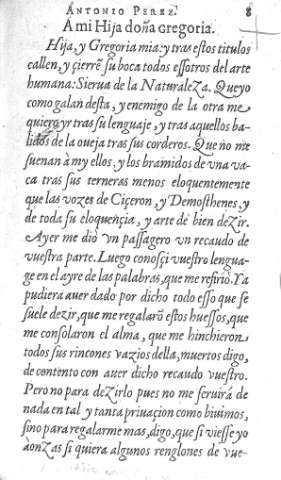 ANTONIO PEREZ. 8
A mi Hija doña Gregoria.
Hija, y Gregoria mia: y tras estos titulos
callen, y çierrẽ su boca todos essotros del arte
humana: Sierua de la Naturaleza. Que yo
como galan desta, y enemigo de la otra me
quiero yr tras su lenguaje, y tras aquellos ba-
lidos de la oueja tras sus corderos. Que no me
suenan à my ellos, y los bramidos de vna va-
ca tras sus terneras menos eloquentemente
que las vozes de Ciçeron, y Demosthenes, y
de toda su eloquençia, y arte de bien dezir.
Ayer me diò vn passagero vn recaudo de
vuestra parte. Luego conosçi vuestro lengua-
ge en el ayre de las palabras, que me refiriò. Ya
pudiera auer dado por dicho todo esso que se
suele dezir, que me regalarõ estos huessos, que
me consolaron el alma, que me hinchieron
todos sus rincones vazios della, muertos digo,
de contento con auer dicho recaudo vuestro.
Pero no para dezirlo pues no me seruirà de
nada en tal y tanta priuaçion como biuimos,
sino para regalarme mas, digo, que si viesse yo
à onzas si quiera algunos renglones de vue-